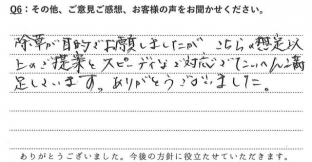 Q6：その他、ご意見ご感想、お客様の声をお聞かせください。
除草が目的でお願しましたが、こちらの想定以
上のご提案とスピーディなご対応でたいへん満
足しています。ありがとうございました。
ありがとうございました。今後の方針に役立たせていただきます。